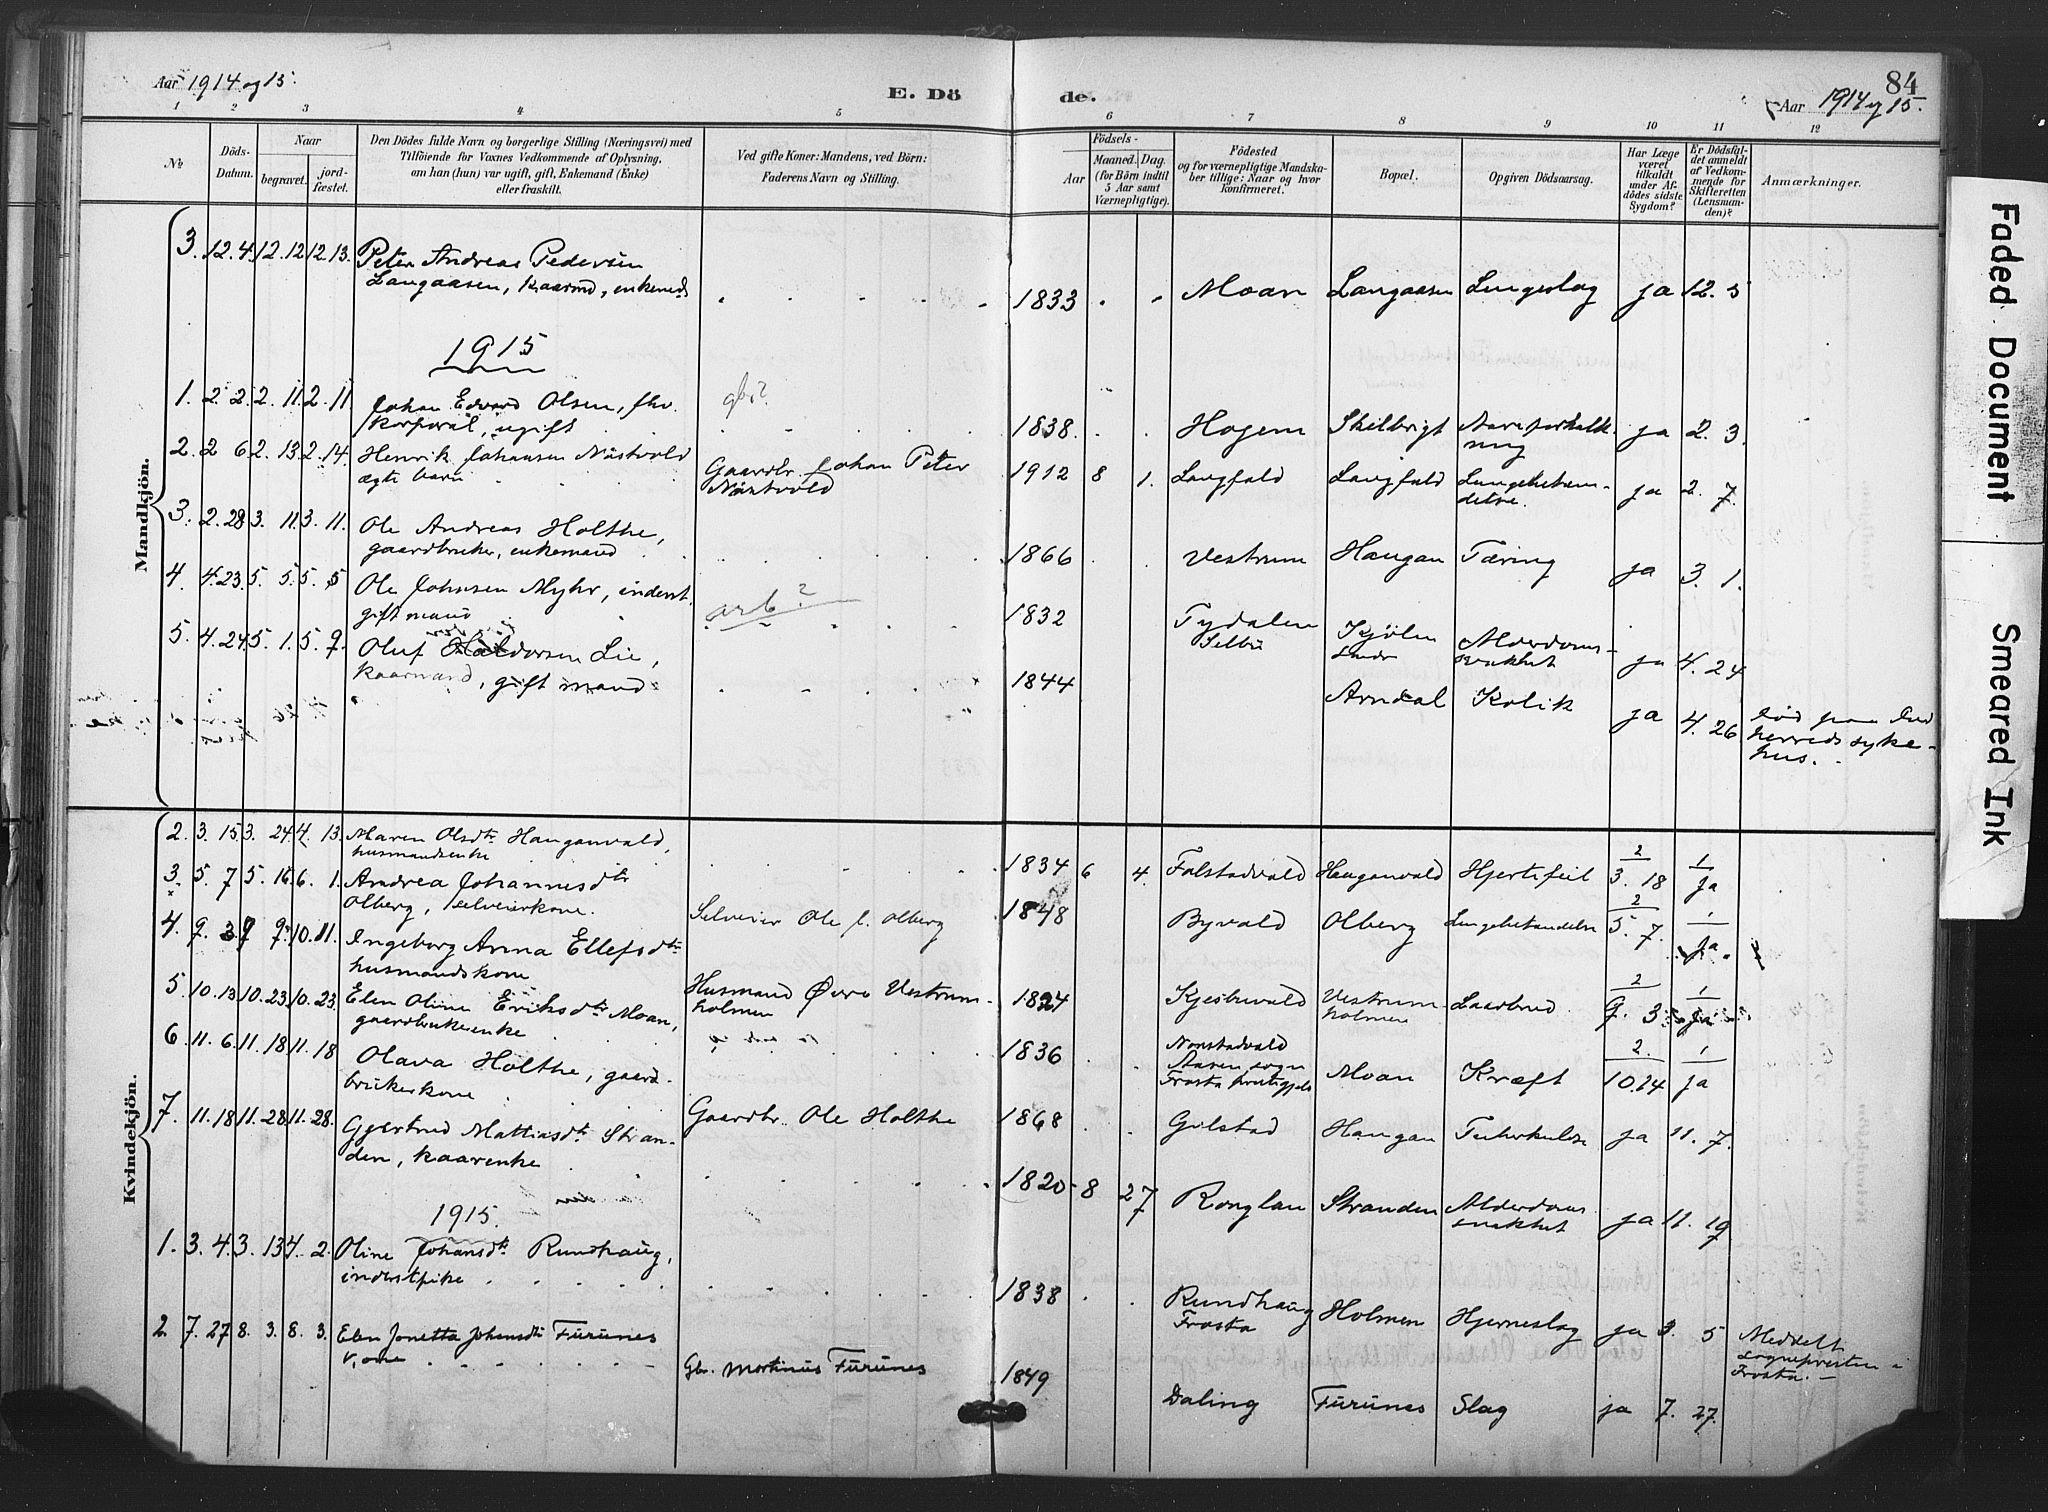 Aar 1914 og 15.
E. Dö
de.
84
Aar 1914 og 15.
1 2 3 4 5 6 7 8 9 10 11 12
No
Döds-Datum.
Naar
begravet.
jord-fæstet.
Den Dödes fulde Navn og borgerlige Stilling (Næringsvei) med
Tilföiende for Voxnes Vedkommende af Oplysning,
om han (hun) var ugift, gift, Enkemand (Enke)
eller fraskilt.
Ved gifte Koner: Mandens, ved Börn:
Faderens Navn og Stilling.
Födsels-
Aar
Maaned. Dag.
(for Börn indtil
5 Aar samt
Værnepligtige).
Födested
og for værnepligtige Mandska-
ber tillige: Naar og hvor
konfirmeret.
Bopæl.
Opgiven Dödsaarsag.
Har Læge
været
tilkaldt
under Af-
dödes sidste
Sygdom?
Er Dödsfal-
det anmeldt
af Vedkom-
mende for
Skifteretten
(Lensman-
den)?
Anmærkninger.
Mandkjön.
3. 12. 4. 12. 12 12. 13. Peter Andreas Pedersen
Langaasen, kaarmd, enkemd 1833 Moan Langaasen Lungeslag ja 12. 5
1915
1. 2. 2. 2. 11. 2. 11. Johan Edvard Olsen, fhv. gbr?
korporal, ugift 1838. Hojem Skilbrigt Aareforkalk-
ning ja 2. 3.
2. 2 6. 2. 13. 2. 14. Henrik Johansen Nästvold
ægte barn Gaardbr. Johan Peter
Nästvold 1912 8 1. Langfald Langfald Lungebetæn-
delse. ja 2. 7.
3. 2. 28 3. 11. 3. 11. Ole Andreas Holthe,
gaardbruker, enkemand 1866 Vestrum Haugan Tæring ja 3. 1.
4. 4. 23. 5. 5. 5. 5 Ole Johnsen Myhr, inderst,
gift mand arb? 1832 Tydalen
Selbu Kjölen
Alderdoms-
svakhet ja 4. 24
5. 4. 24 5. 1. 5. 9. Oluf Haldorsen Lie,
kaarmand, gift mand 1844 Arndal Kolik ja 4. 26 Död paa Ind
herreds syke-
hus.
Kvindekjön.
2. 3. 15 3. 24. 4. 13. Maren Olsdtr Hauganvald,
husmandsenke 1834 6 4. Falstadvald Hauganvald Hjertefeil 2/3. 18 1/ja
3. 5. 7 5. 16 6. 1. Andrea Johannesdtr
Olberg, selveierkone. Selveier Ole J. Olberg 1848 Byvald Olberg Lungebetændelse 2/5. 7. 1/ja
4. 9. 3 9 9. 10. 11. Ingeborg Anna Ellefsdtr
husmandskone Husmand Övre Vestrum-
holmen 1824 Kjesbuvald Vestrum-
holmen Laarbrud 2/9. 3 1/ja
5. 10. 13. 10. 23. 10. 23. Elen Oline Eriksdtr Moan,
gaardbrukerenke 1836 Nonstadvald
Aasen sogn
Frosta Moan Kræft 2./10. 24 1/ja
6. 11. 6. 11. 18 11. 18 Olava Holthe, gaard-
brukerkone Gaardbr. Ole Holthe 1868 Gilstad Haugan Tuberkulose ja 11. 7.
7. 11. 18 11. 28 11. 28. Gjertrud Mattiasdtr Stran-
den, kaarenke 1820 8 27 Ronglan Stranden Alderdoms
svakhet ja 11. 19
1915.
1. 3. 4. 3. 13 4. 2. Oline Johansdtr Rundhaug,
inderstpike 1838 Rundhaug
Frosta Holmen Hjerneslag ja 3. 5 Meddelt
Sognepresten i
Frosta.
2. 7. 27 8. 3. 8. 3. Elen Jonetta Johansdtr Furunes
kone Gbr. Mortinus Furunes 1849 Daling Furunes Slag ja 7. 27.
Faded Document
Smeared Ink